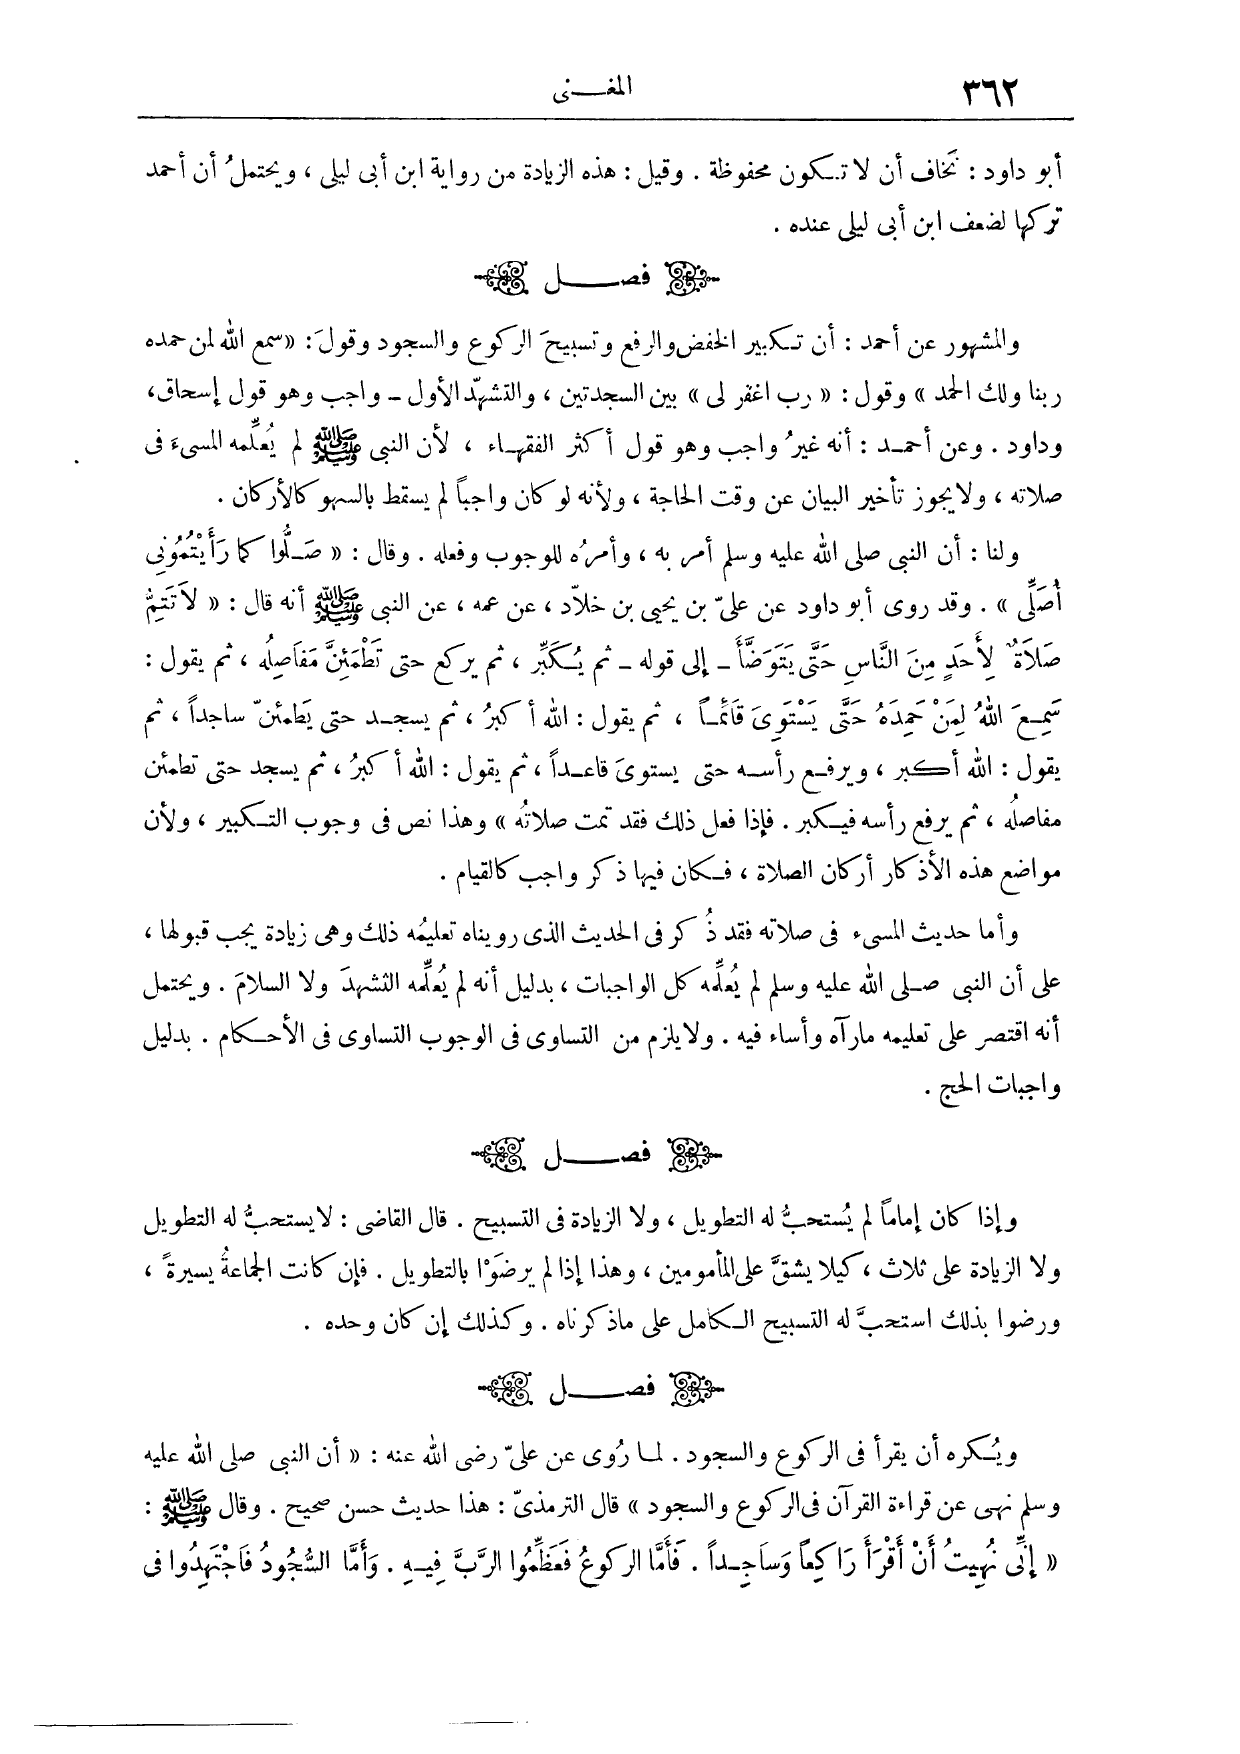 ٣٦٢
المغـنى
أبو داود : نَخاف أن لا تكون محفوظة . وقيل : هذه الزيادة من رواية ابن أبى ليلى ، ويحتملُ أن أحمد
تركها لضعف ابن أبى ليلى عنده .
فصـل
والمشهور عن أحمد : أن تكبير الخفض والرفع وتسبيحَ الركوع والسجود وقولَ : «سمع الله لمن حمده
ربنا ولك الحمد » وقول : « رب اغفر لى » بين السجدتين ، والتشهّد الأول – واجب وهو قول إسحاق،
وداود . وعن أحمـد : أنه غيرُ واجب وهو قول أكثر الفقهـاء ، لأن النبى ﷺ لم يُعلِّمه المسىءَ فى
صلاته ، ولا يجوز تأخير البيان عن وقت الحاجة ، ولأنه لو كان واجباً لم يسقط بالسهو كالأركان .
ولنا : أن النبى صلى الله عليه وسلم أمر به ، وأمرُه للوجوب وفعله . وقال : « صَـلُّوا كما رَأَيْتُمُونِى
أُصَلِّى » . وقد روى أبو داود عن علىّ بن يحيى بن خلاّد ، عن عمه ، عن النبى ﷺ أنه قال : « لاَ تَتَمِّ
صَلاَةٌ لِأَحَدٍ مِنَ النَّاسِ حَتَّى يَتَوَضَّأَ – إلى قوله – ثم يُكَبِّر ، ثم يركع حتى تَطْمَئِنَّ مَفَاصِلُه ، ثم يقول :
سَمِـعَ اللهُ لِمَنْ حَمِدَهُ حَتَّى يَسْتَوِىَ قَائِمـاً ، ثم يقول : الله أكبرُ ، ثم يسجـد حتى يَطمئنّ ساجداً ، ثم
يقول : الله أكبر ، ويرفـع رأسـه حتى يستوىَ قاعـداً ، ثم يقول : الله أكبرُ ، ثم يسجد حتى تطمئن
مفاصلُه ، ثم يرفع رأسه فيكبر . فإذا فعل ذلك فقد تمت صلاتُه » وهذا نص فى وجوب التكبير ، ولأن
مواضع هذه الأذكار أركان الصلاة ، فكان فيها ذكر واجب كالقيام .
وأما حديث المسىء فى صلاته فقد ذُكر فى الحديث الذى رويناه تعليمُه ذلك وهى زيادة يجب قبولها ،
على أن النبى صلى الله عليه وسلم لم يُعلِّمه كل الواجبات ، بدليل أنه لم يُعلِّمه التشهدَ ولا السلامَ . ويحتمل
أنه اقتصر على تعليمه مارآه وأساء فيه . ولا يلزم من التساوى فى الوجوب التساوى فى الأحكام . بدليل
واجبات الحج .
فصـل
وإذا كان إماماً لم يُستحبُّ له التطويل ، ولا الزيادة فى التسبيح . قال القاضى : لا يستحبُّ له التطويل
ولا الزيادة على ثلاث ، كيلا يشقَّ على المأمومين ، وهذا إذا لم يرضَوْا بالتطويل . فإن كانت الجماعةُ يسيرةً ،
ورضوا بذلك استحبَّ له التسبيح الكامل على ماذكرناه . وكذلك إن كان وحده .
فصـل
ويُكره أن يقرأ فى الركوع والسجود . لمـا رُوى عن علىّ رضى الله عنه : « أن النبى صلى الله عليه
وسلم نهى عن قراءة القرآن فى الركوع والسجود » قال الترمذىّ : هذا حديث حسن صحيح . وقال ﷺ :
« إِنِّى نُهِيتُ أَنْ أَقْرَأَ رَاكِعاً وَسَاجِـداً . فَأَمَّا الركوعُ فَعَظِّمُوا الرَّبَّ فِيـهِ . وَأَمَّا السُّجُودُ فَاجْتَهِدُوا فى